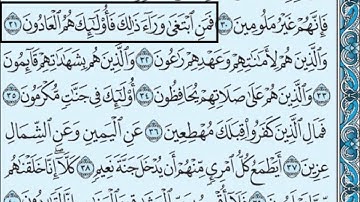 فَإِنَّهُمْ غَيْرُ مَلُومِينَ ٣٠ فَمَنِ ٱبْتَغَىٰ وَرَآءَ ذَٰلِكَ فَأُو۟لَٰٓئِكَ هُمُ ٱلْعَادُونَ ٣١
وَٱلَّذِينَ هُمْ لِأَمَٰنَٰتِهِمْ وَعَهْدِهِمْ رَٰعُونَ ٣٢ وَٱلَّذِينَ هُم بِشَهَٰدَٰتِهِمْ قَآئِمُونَ
٣٣ وَٱلَّذِينَ هُمْ عَلَىٰ صَلَاتِهِمْ يُحَافِظُونَ ٣٤ أُو۟لَٰٓئِكَ فِى جَنَّٰتٍ مُّكْرَمُونَ ٣٥
فَمَالِ ٱلَّذِينَ كَفَرُوا۟ قِبَلَكَ مُهْطِعِينَ ٣٦ عَنِ ٱلْيَمِينِ وَعَنِ ٱلشِّمَالِ
عِزِينَ ٣٧ أَيَطْمَعُ كُلُّ ٱمْرِئٍ مِّنْهُمْ أَن يُدْخَلَ جَنَّةَ نَعِيمٍ ٣٨ كَلَّآ إِنَّا خَلَقْنَٰهُم